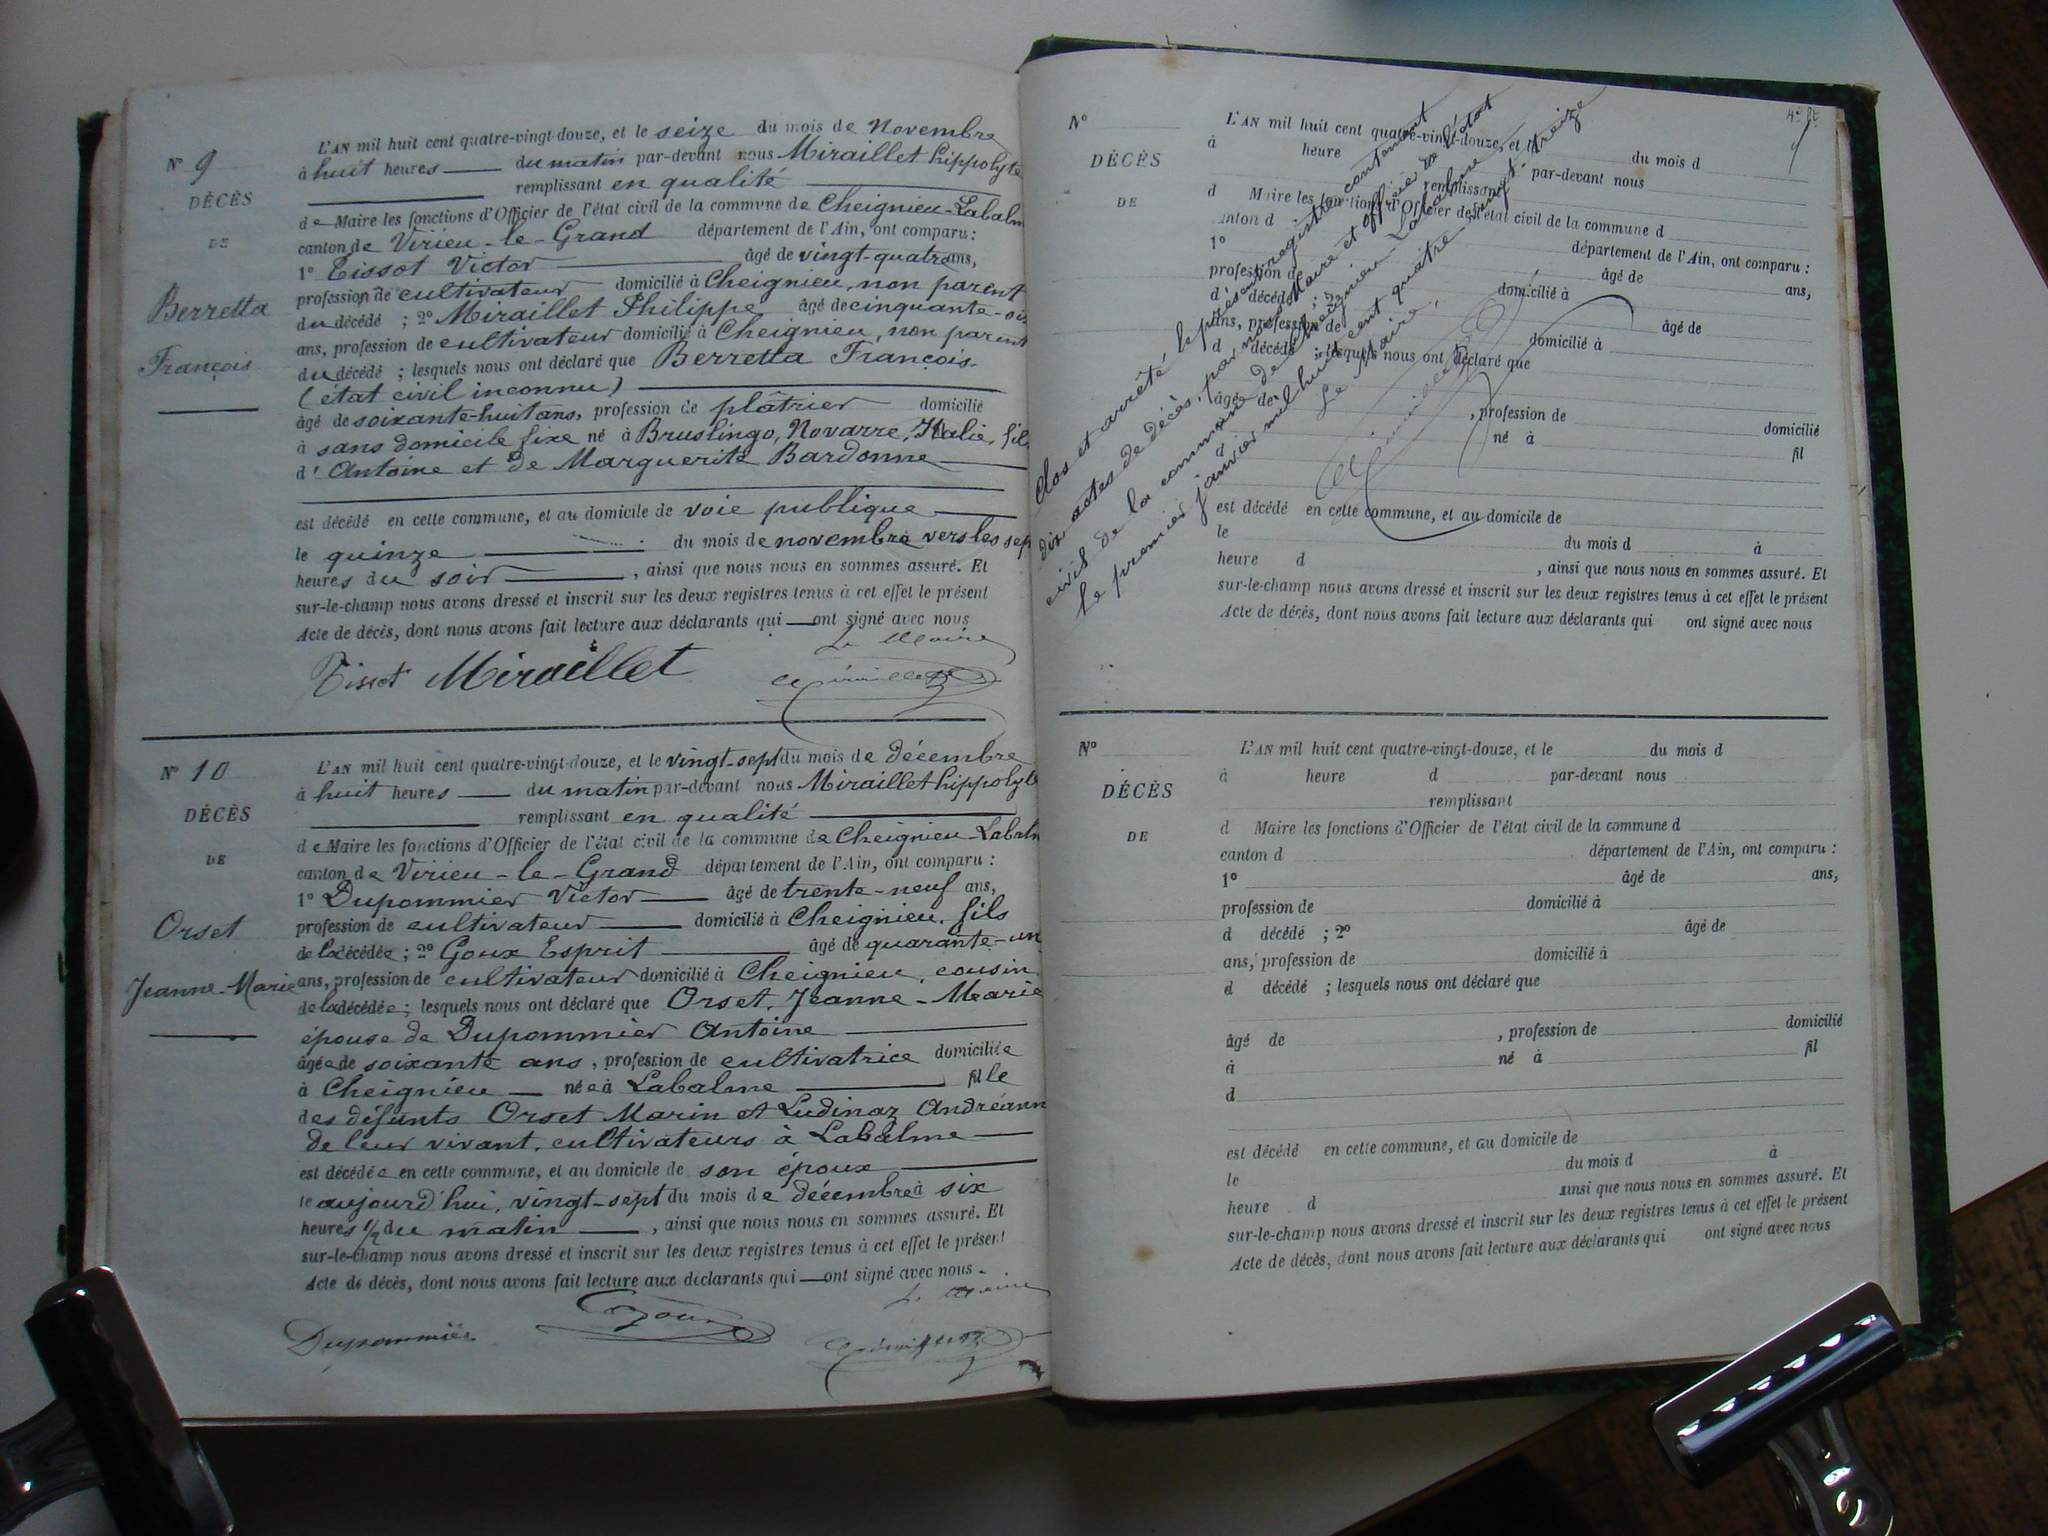 N° 9
DÉCÈS
DE
Berretta
François
L'AN mil huit cent quatre-vingt-douze, et le seize du mois de Novembre
à huit heures du matin par-devant nous Miraillet hippolyte
remplissant en qualité
de Maire les fonctions d'Officier de l'état civil de la commune de Cheignieu-Labalm
canton de Virieu-le-Grand département de l'Ain, ont comparu :
1° Tissot Victor âgé de vingt-quatre ans,
profession de cultivateur domicilié à Cheignieu, non parent
du décédé ; 2° Miraillet Philippe âgé de cinquante-six
ans, profession de cultivateur domicilié à Cheignieu, non parent
du décédé ; lesquels nous ont déclaré que Berretta François.
(état civil inconnu)
âgé de soixante-huit ans, profession de plâtrier domicilié
à sans domicile fixe né à Bruslingo, Novarre, Italie, fils
d'Antoine et de Marguerite Bardonne
est décédé en cette commune, et au domicile de voie publique
le quinze du mois de novembre à vers les sep
heures du soir, ainsi que nous nous en sommes assuré. Et
sur-le-champ nous avons dressé et inscrit sur les deux registres tenus à cet effet le présent
Acte de décès, dont nous avons fait lecture aux déclarants qui ont signé avec nous
Le Maire
Tissot Miraillet
N° 10
DÉCÈS
DE
Orset
Jeanne-Marie
L'AN mil huit cent quatre-vingt-douze, et le vingt-sept du mois de décembre
à huit heures du matin par-devant nous Miraillet hippolyte
remplissant en qualité
de Maire les fonctions d'Officier de l'état civil de la commune de Cheignieu-Labalm
canton de Virieu-le-Grand département de l'Ain, ont comparu :
1° Dupommier Victor âgé de trente-neuf ans,
profession de cultivateur domicilié à Cheignieu, fils
de la décédée ; 2° Goux Esprit âgé de quarante-un
ans, profession de cultivateur domicilié à Cheignieu, cousin
de la décédée ; lesquels nous ont déclaré que Orset, Jeanne-Marie
épouse de Dupommier Antoine
âgée de soixante ans, profession de cultivatrice domiciliée
à Cheignieu née à Labalme fille
des défunts Orset Marin et Ludinaz Andréann
de leur vivant, cultivateurs à Labalme
est décédée en cette commune, et au domicile de son époux
le aujourd'hui, vingt-sept du mois de décembre à six
heures 1/2 du matin, ainsi que nous nous en sommes assuré. Et
sur-le-champ nous avons dressé et inscrit sur les deux registres tenus à cet effet le présent
Acte de décès, dont nous avons fait lecture aux déclarants qui ont signé avec nous.
Le Maire
Dupommier Goux
N°
DÉCÈS
DE
L'AN mil huit cent quatre-vingt-douze, et le du mois d
à heure par-devant nous
remplissant
d Maire les fonctions d'Officier de l'état civil de la commune d
canton d département de l'Ain, ont comparu :
1° âgé de ans,
profession de domicilié à
d décédé ; 2° âgé de
ans, profession de domicilié à
d décédé ; lesquels nous ont déclaré que
âgé de , profession de domicilié
né à fil
d
est décédé en cette commune, et au domicile de
le du mois d à
heure d , ainsi que nous nous en sommes assuré. Et
sur-le-champ nous avons dressé et inscrit sur les deux registres tenus à cet effet le présent
Acte de décès, dont nous avons fait lecture aux déclarants qui ont signé avec nous
Clos et arrêté le présent registre contenant
dix actes de décès, par nous Maire et officier de l'état
civil de la commune de Cheignieu-Labalme
le premier janvier mil huit cent quatre-vingt-treize
Le Maire,
N°
DÉCÈS
DE
L'AN mil huit cent quatre-vingt-douze, et le du mois d
à heure d par-devant nous
remplissant
d Maire les fonctions d'Officier de l'état civil de la commune d
canton d département de l'Ain, ont comparu :
1° âgé de ans,
profession de domicilié à
d décédé ; 2° âgé de
ans, profession de domicilié à
d décédé ; lesquels nous ont déclaré que
âgé de , profession de domicilié
à né à fil
d
est décédé en cette commune, et au domicile de
le du mois d à
heure d ainsi que nous nous en sommes assuré. Et
sur-le-champ nous avons dressé et inscrit sur les deux registres tenus à cet effet le présent
Acte de décès, dont nous avons fait lecture aux déclarants qui ont signé avec nous